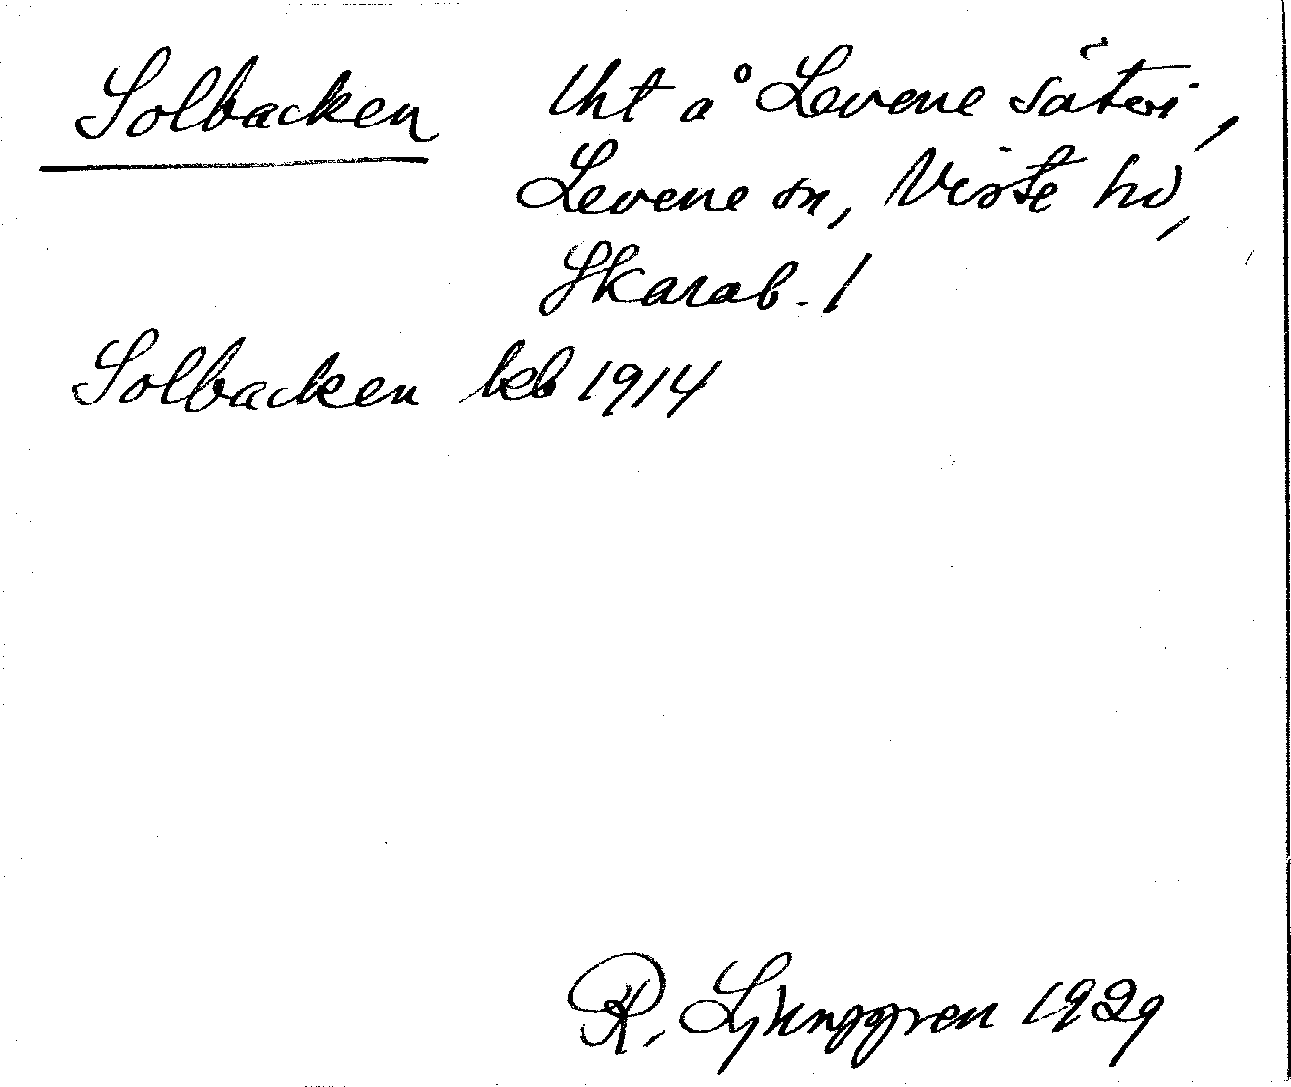 Solbacken lht å Levene säteri,
Levene sn, Viste hd,
Skarab. l
Solbacken kb 1914
R. Ljunggren 1929